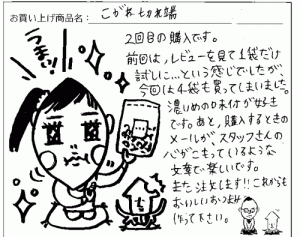 お買い上げ商品名： こがね切れ端
うまっ！
2回目の購入です。
前回は、レビューを見て1袋だけ
試しに…という感じでしたが、
今回は4袋も買ってしまいました。
濃いめの味付が好き
です。あと、購入するときの
メールが、スタッフさんの
心がこもっているような
文章で楽しいです。
また注文します!! これからも
おいしいおつまみ
作って下さい。